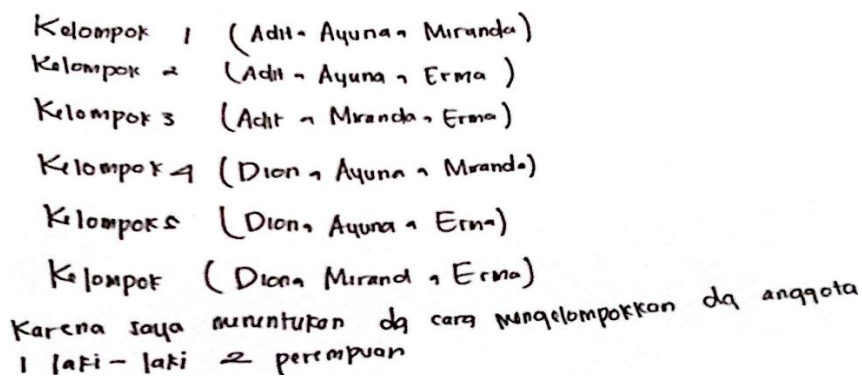 Kelompok 1 (Adit, Ayuna, Miranda)
Kelompok 2 (Adit, Ayuna, Erma)
Kelompok 3 (Adit, Miranda, Erma)
Kelompok 4 (Dion, Ayuna, Miranda)
Kelompok 5 (Dion, Ayuna, Erma)
Kelompok (Dion, Mirand, Erma)
Karena saya menentukan dg cara mengelompokkan dg anggota
1 laki-laki 2 perempuan